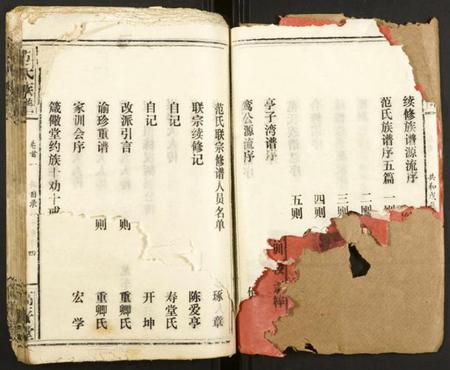 续修族谱源流序
范氏族谱序五篇 一则
二则
三则
四则
五则
鸾公源流序
亭子湾谱序
范氏联宗修谱人员名单 琢章
联宗续修记 陈爱亭
自记 寿堂氏
自记 开坤
改派引言 则 重卿氏
谕珍重谱 则 重卿氏
家训会序 宏学
箴儆堂约族十劝十戒
范氏族谱
卷首
目录
四
共和戊